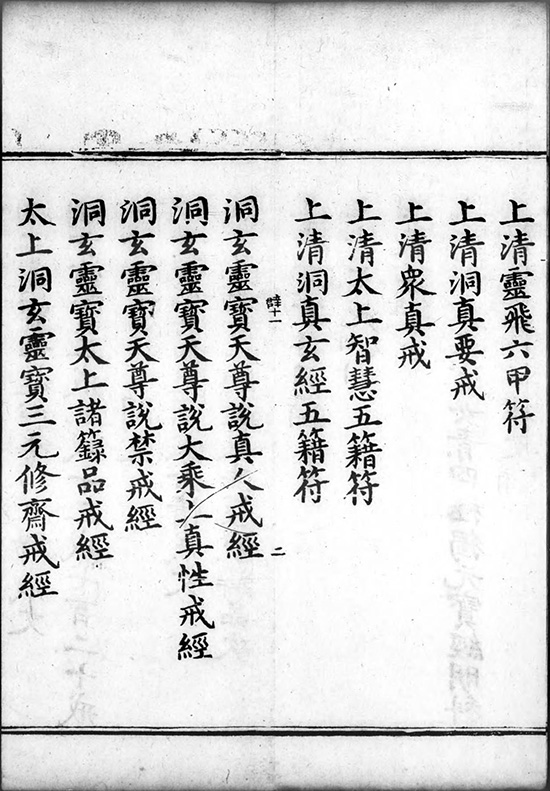 上清靈飛六甲符
上清洞真要戒
上清衆真戒
上清太上智慧五籍符
上清洞真玄經五籍符
洞玄靈寶天尊說真人戒經
洞玄靈寶天尊說大乘入真性戒經
洞玄靈寶天尊說禁戒經
洞玄靈寶太上諸籙品戒經
太上洞玄靈寶三元修齋戒經